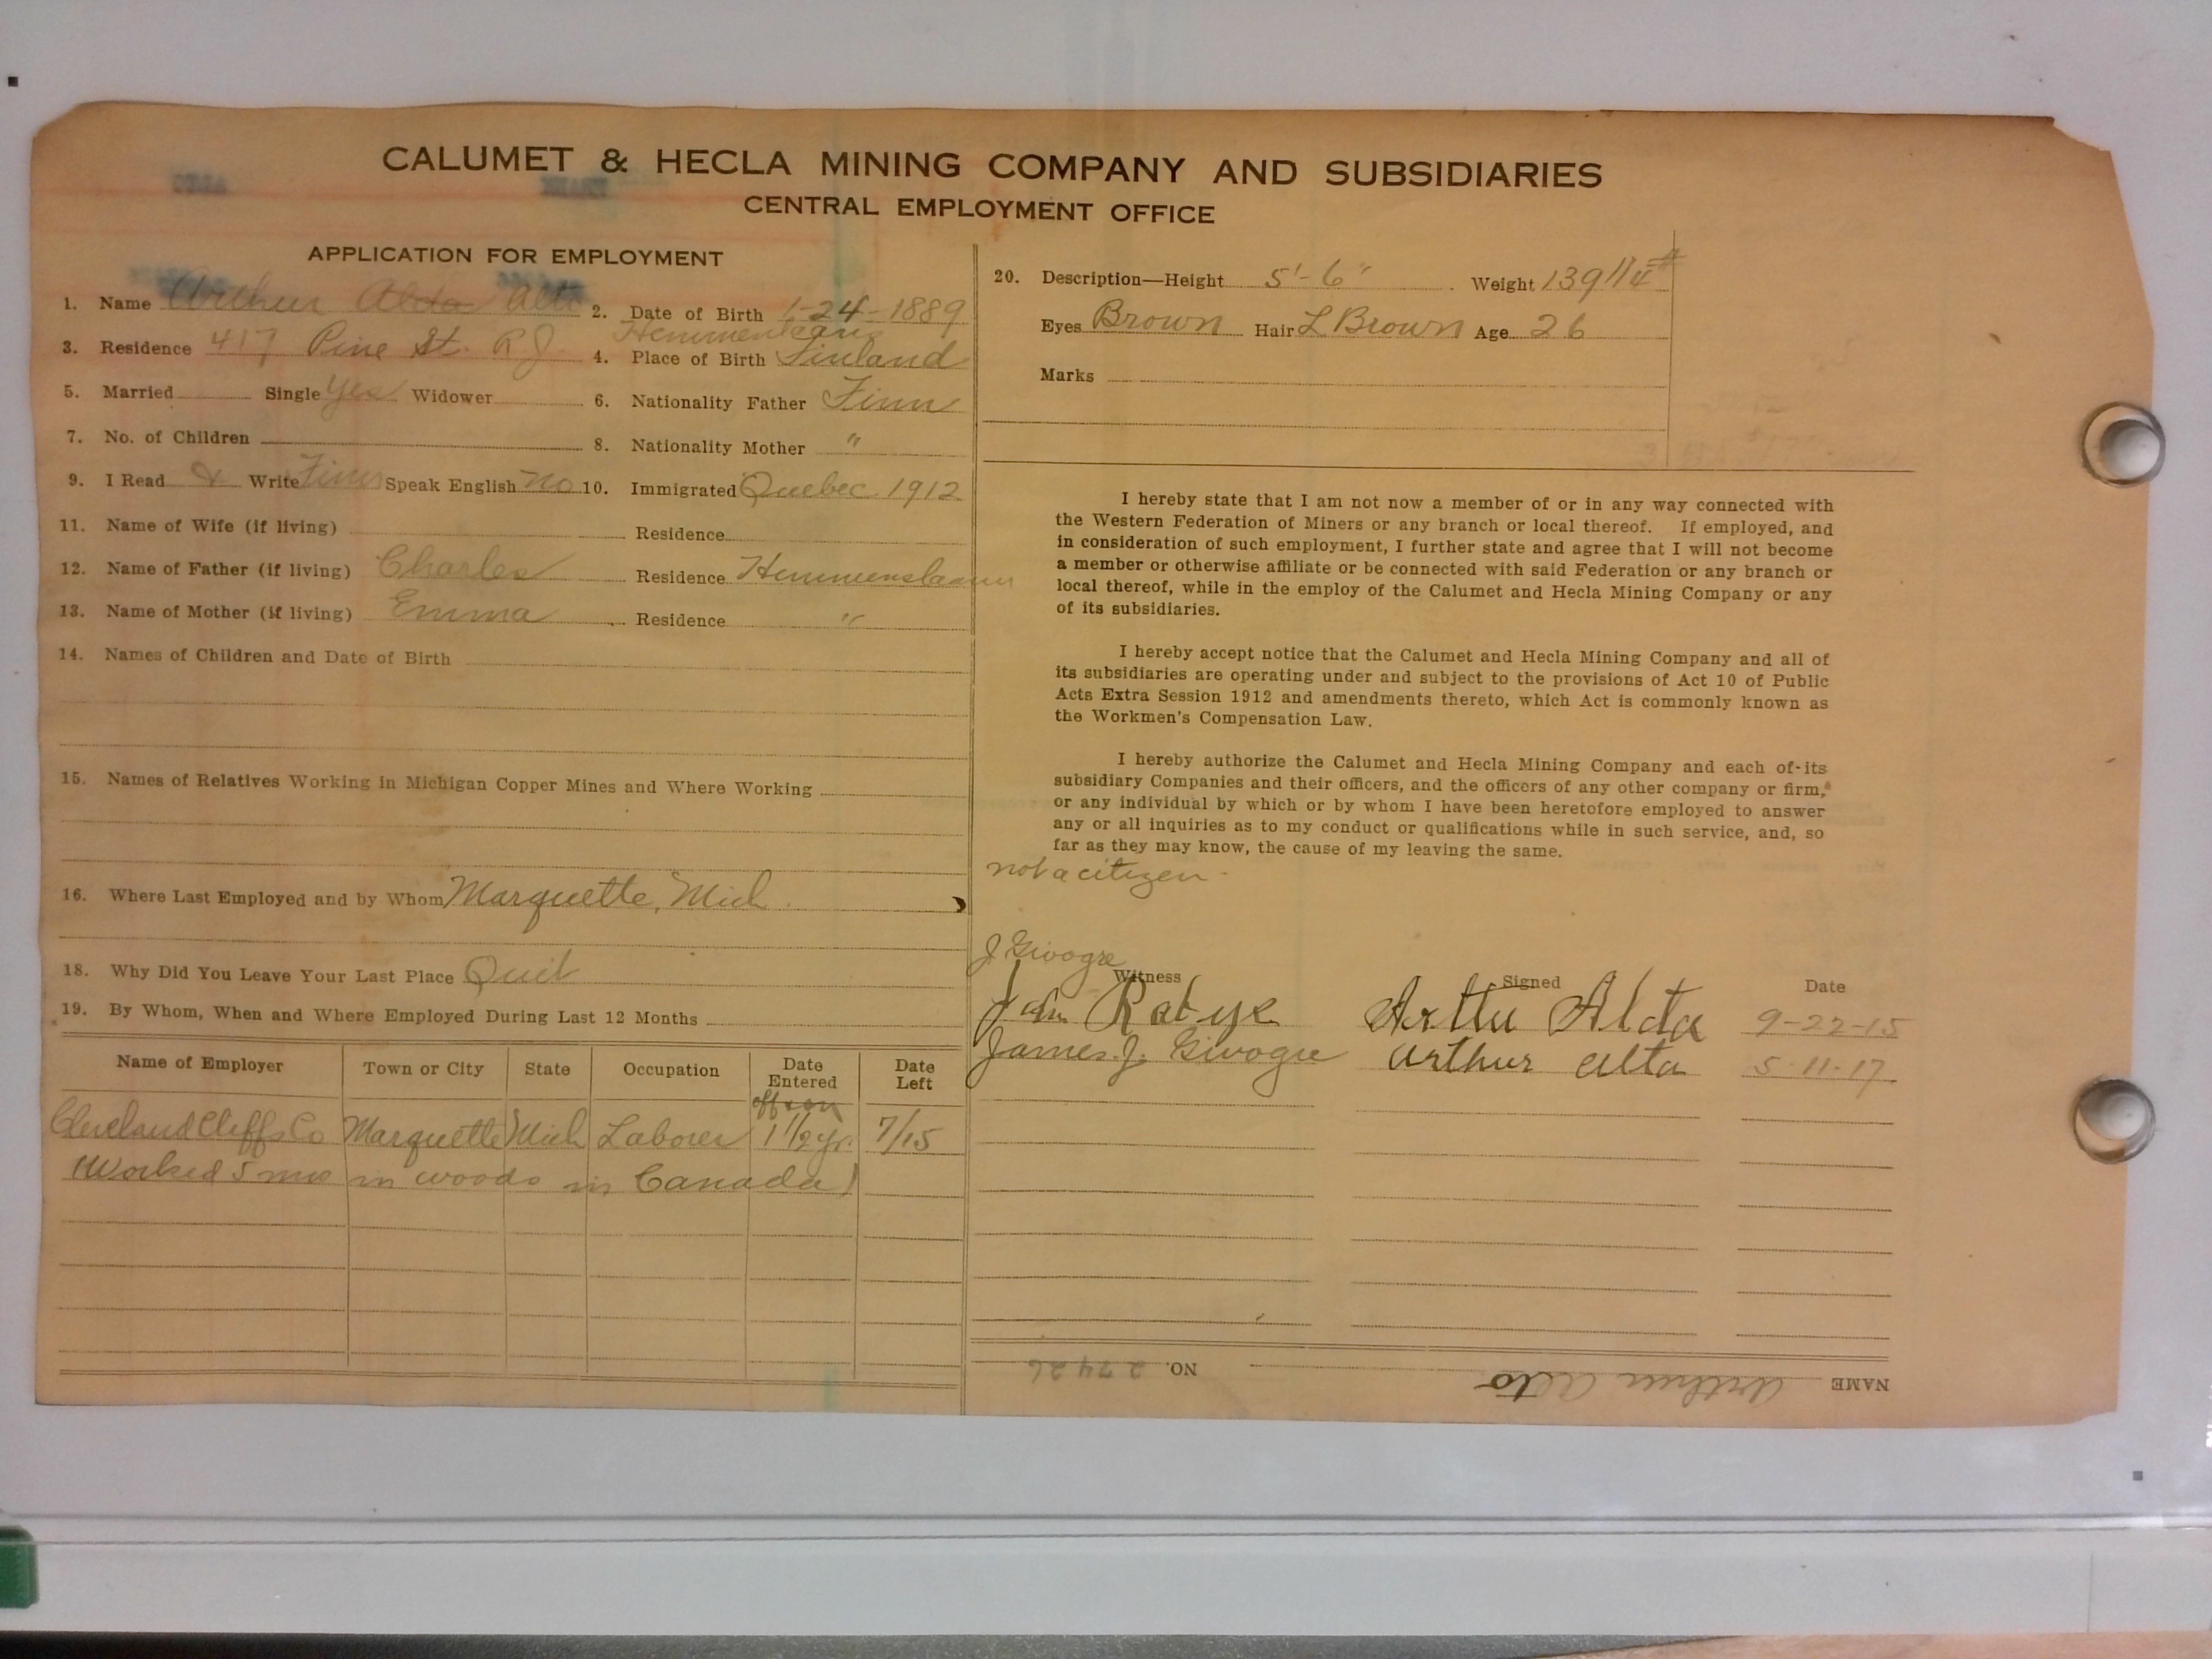 CALUMET & HECLA MINING COMPANY AND SUBSIDIARIES
CENTRAL EMPLOYMENT OFFICE
APPLICATION FOR EMPLOYMENT
1. Name Arthur Aldo Alto
2. Date of Birth 1-24-1889
3. Residence 417 Pine St. R J
4. Place of Birth Finland
5. Married Single Yes Widower
6. Nationality Father Finn
7. No. of Children
8. Nationality Mother "
9. I Read & Write Finn Speak English No
10. Immigrated Quebec 1912
11. Name of Wife (if living) Residence
12. Name of Father (if living) Charles Residence
13. Name of Mother (if living) Emma Residence "
14. Names of Children and Date of Birth
15. Names of Relatives Working in Michigan Copper Mines and Where Working
16. Where Last Employed and by Whom Marquette, Mich.
18. Why Did You Leave Your Last Place Quit
19. By Whom, When and Where Employed During Last 12 Months
Name of Employer Town or City State Occupation Date Entered Date Left
off & on
Cleveland Cliffs Co Marquette Mich Laborer 1 1/2 yr. 7/15
(Worked 5 mos in woods in Canada)
20. Description—Height 5'-6" Weight 139 1/4 #
Eyes Brown Hair L Brown Age 26
Marks
I hereby state that I am not now a member of or in any way connected with
the Western Federation of Miners or any branch or local thereof. If employed, and
in consideration of such employment, I further state and agree that I will not become
a member or otherwise affiliate or be connected with said Federation or any branch or
local thereof, while in the employ of the Calumet and Hecla Mining Company or any
of its subsidiaries.
I hereby accept notice that the Calumet and Hecla Mining Company and all of
its subsidiaries are operating under and subject to the provisions of Act 10 of Public
Acts Extra Session 1912 and amendments thereto, which Act is commonly known as
the Workmen's Compensation Law.
I hereby authorize the Calumet and Hecla Mining Company and each of its
subsidiary Companies and their officers, and the officers of any other company or firm,
or any individual by which or by whom I have been heretofore employed to answer
any or all inquiries as to my conduct or qualifications while in such service, and, so
far as they may know, the cause of my leaving the same.
not a citizen
J Givogre
Witness Signed Date
Arttu Alda 9-22-15
James J. Givogre Arthur Alta 5-11-17
NAME Arthur Alto NO. 27426